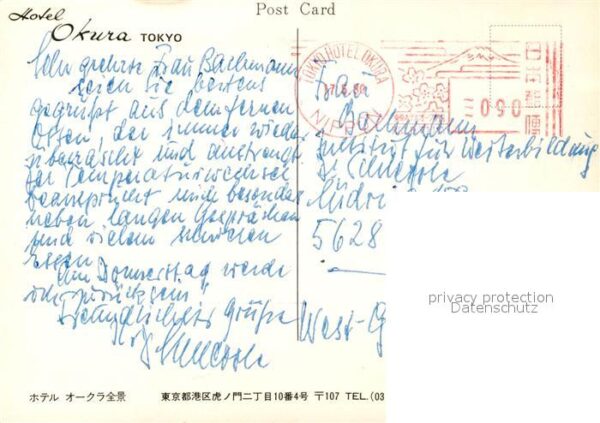 Post Card
Hotel
Okura TOKYO
Sehr geehrte Frau Bachmann
seien Sie bestens
gegrüßt aus dem fernen
Osten, der immer wieder
überrascht und anstrengt
Der Temperaturwechsel
beansprucht mich besonders
neben langen Gesprächen
und vielem
Essen
Am Donnerstag werde
ich zurück sein
Freundliche Grüße
TOKYO HOTEL OKURA
NIPPON
日本郵便
060
Frau
Bachmann
Institut für Weiterbildung
5628
West-G
privacy protection
Datenschutz
ホテル オークラ全景
東京都港区虎ノ門二丁目10番4号 〒107 TEL.(03